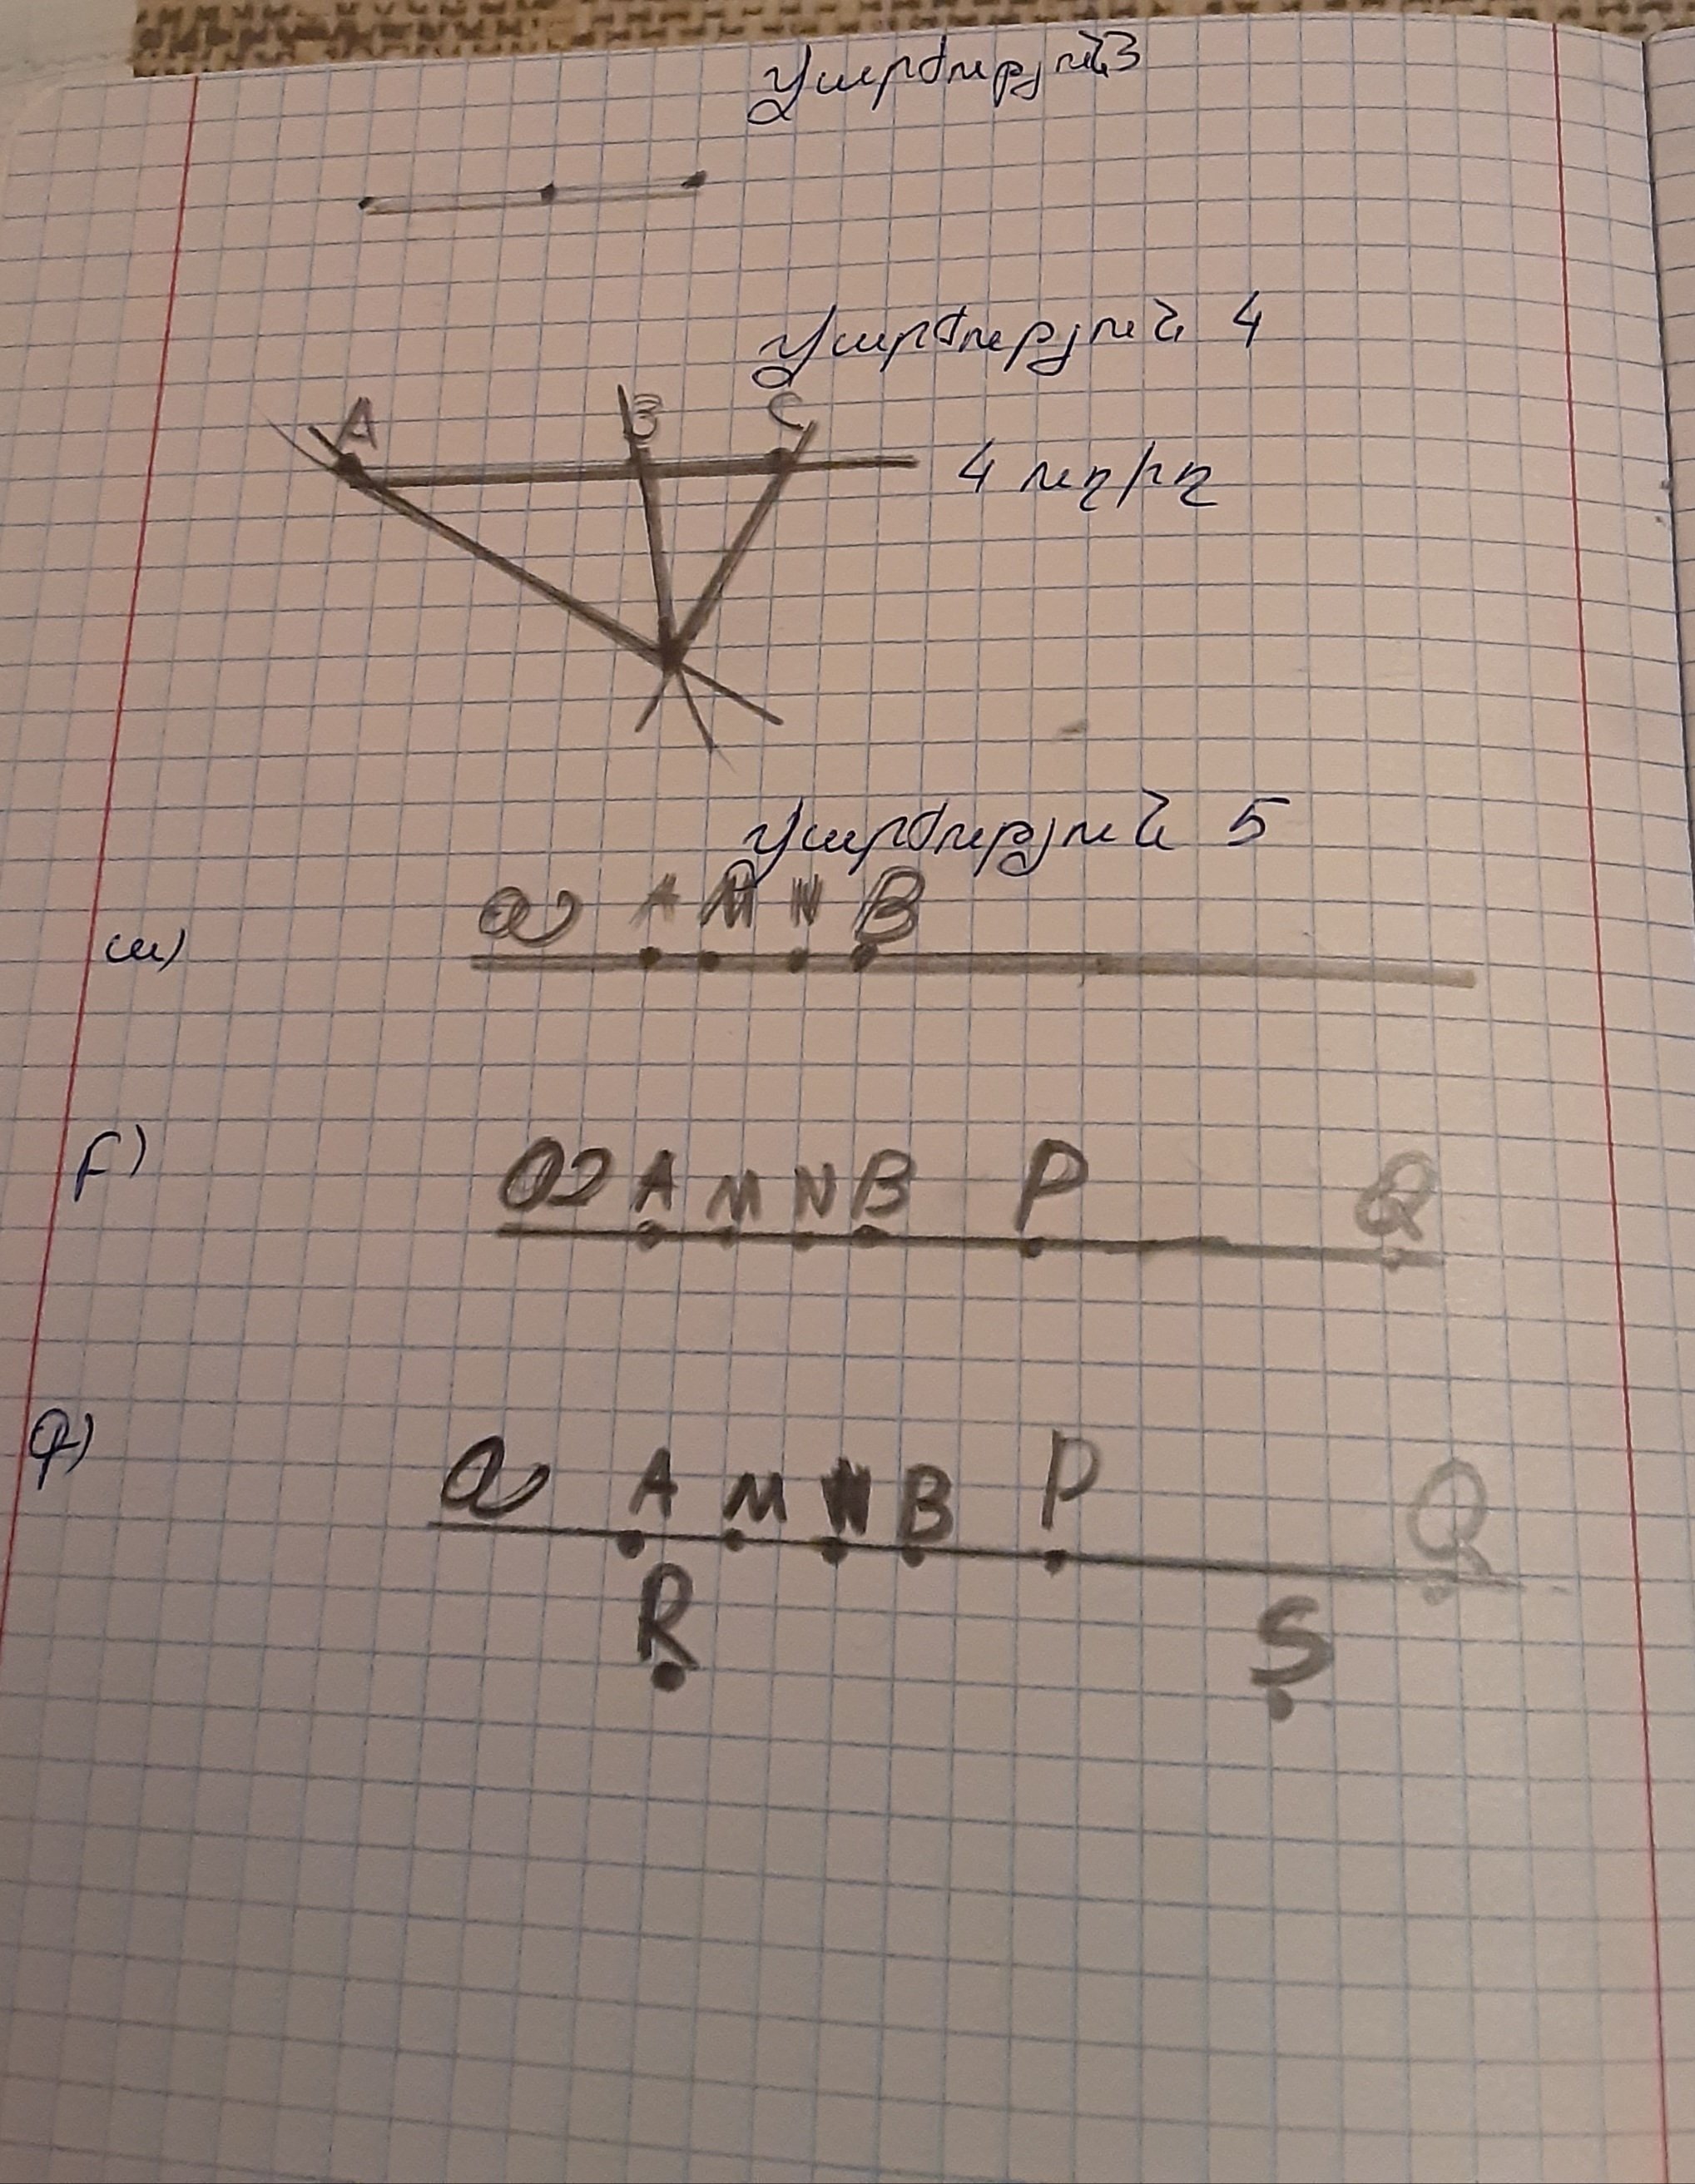 Վարժություն 3
Վարժություն 4
A B C
4 ուղիղ
Վարժություն 5
ա) a A M N B
բ) a A M N B P Q
գ) a A M N B P Q
R S